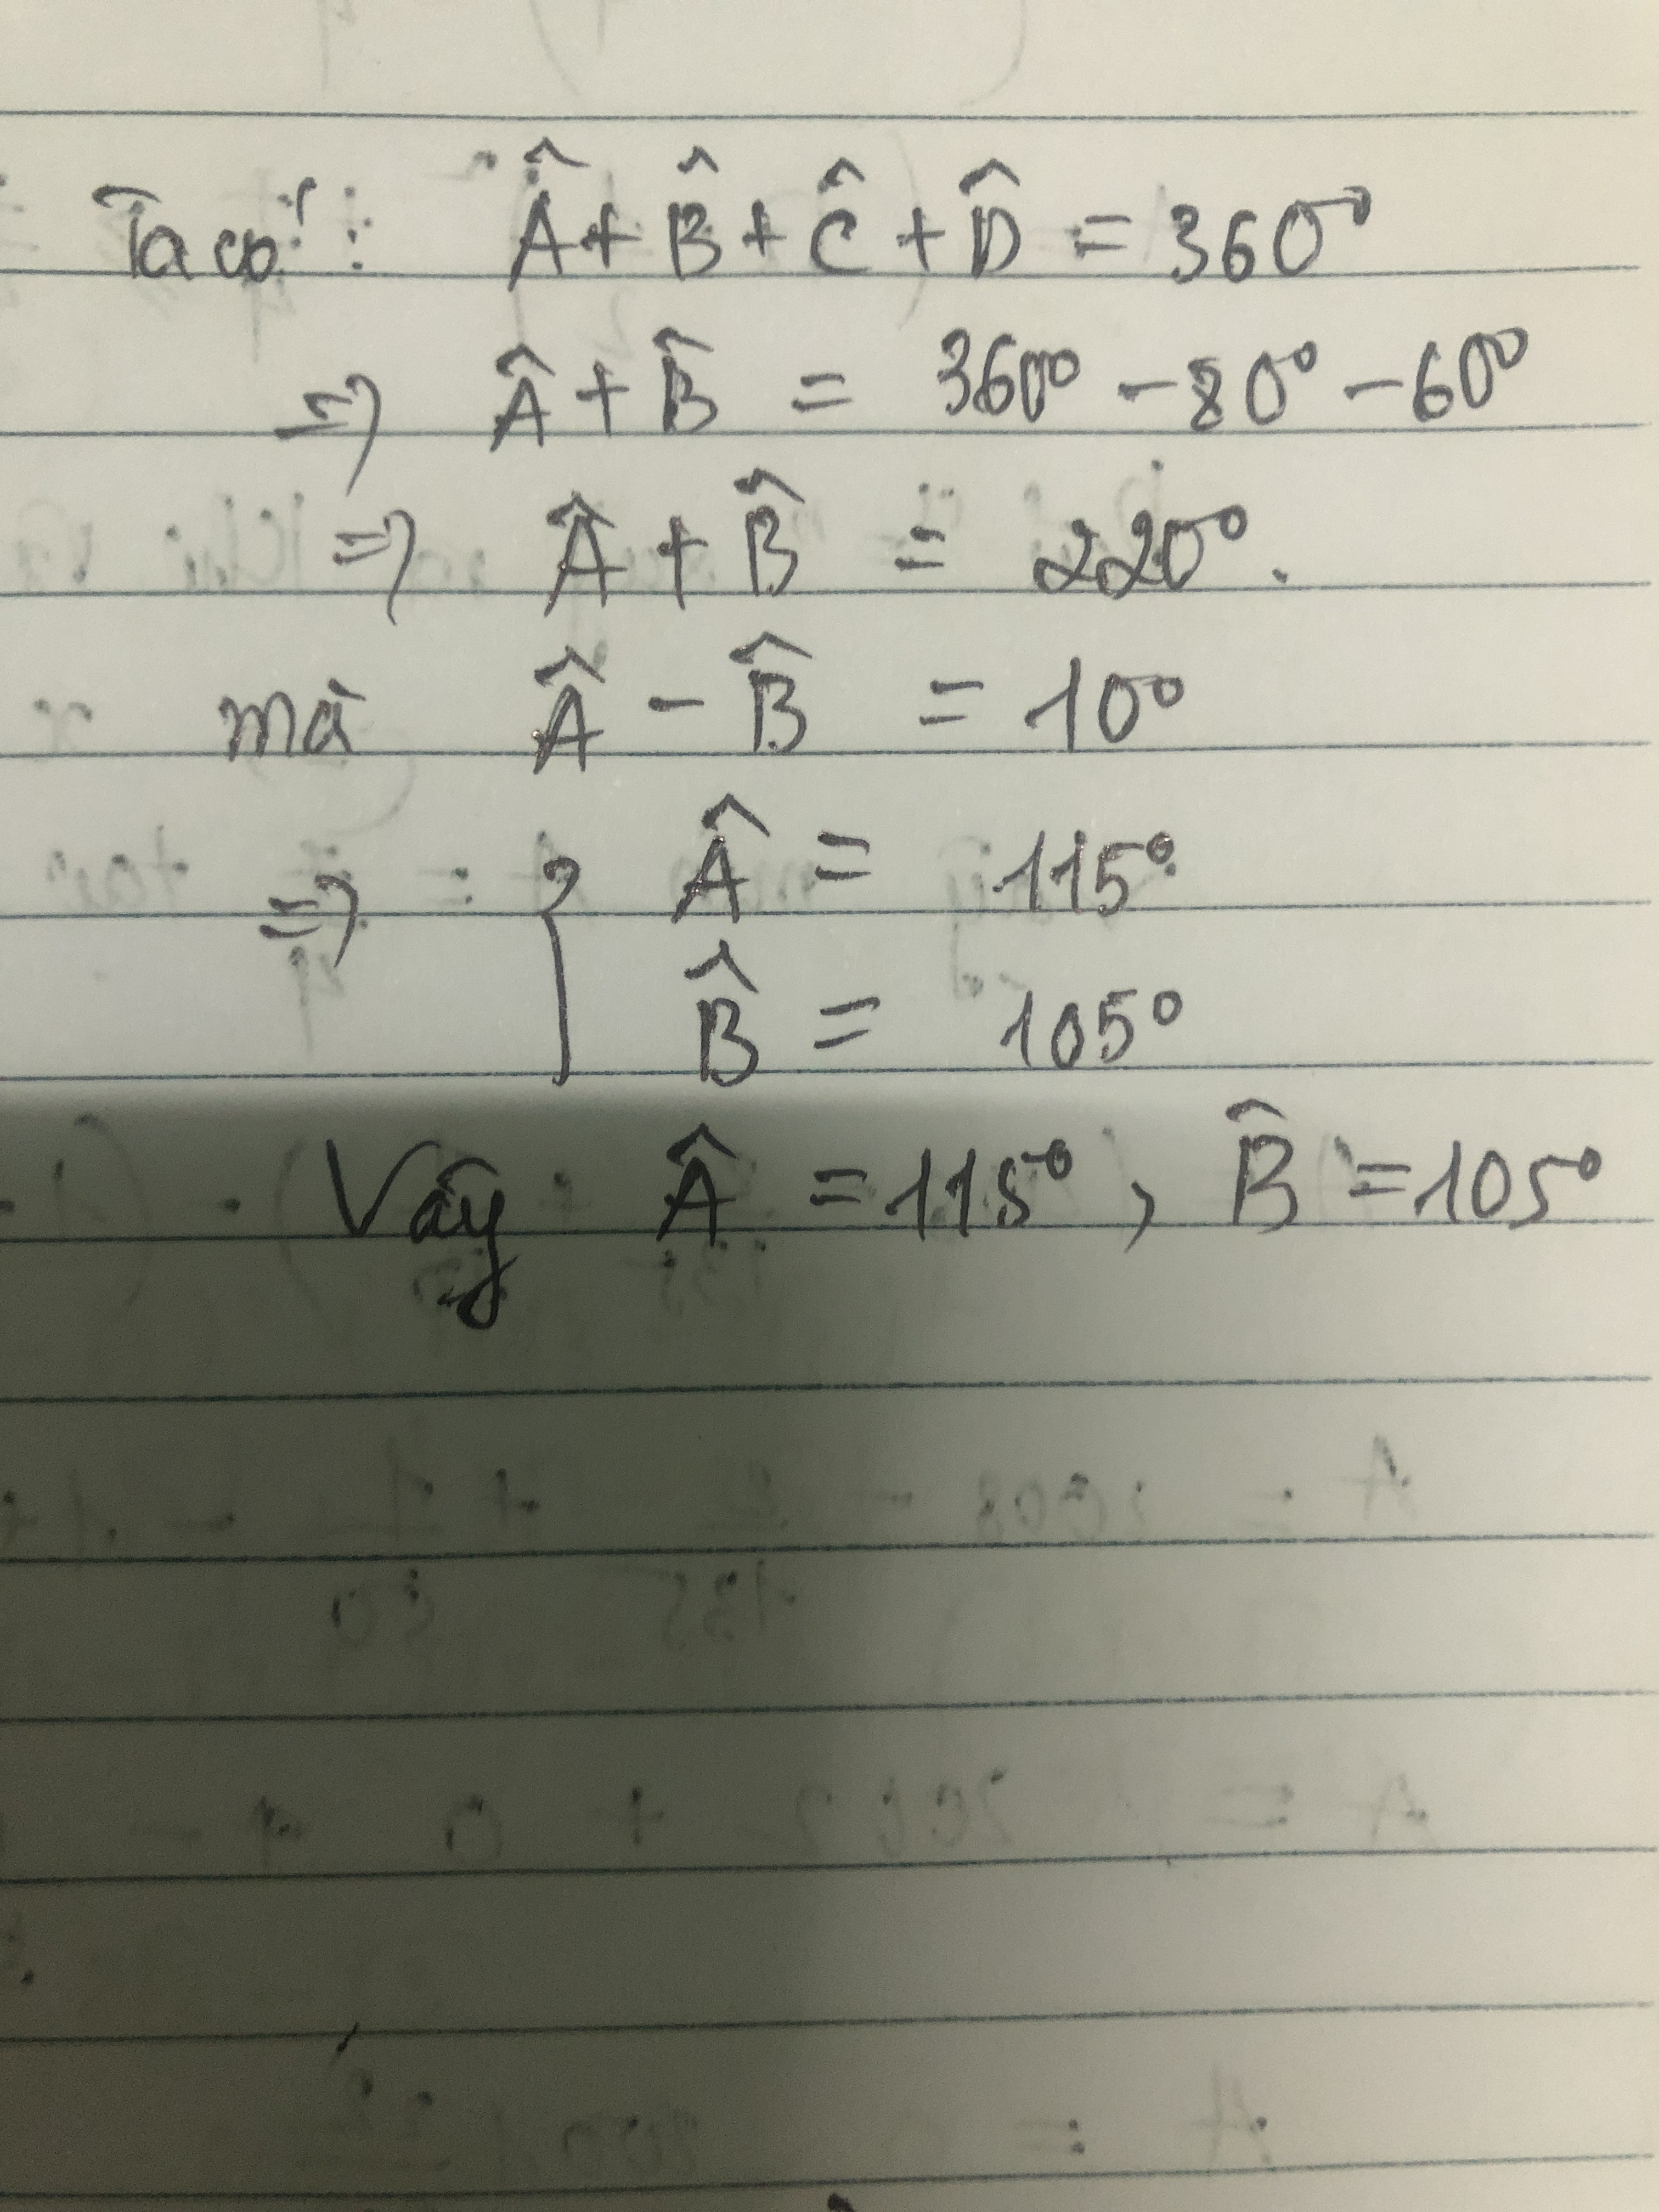 Ta có: Â + B̂ + Ĉ + D̂ = 360°
=> Â + B̂ = 360° - 80° - 60°
=> Â + B̂ = 220°.
mà Â - B̂ = 10°
=> { Â = 115°
B̂ = 105°
Vậy Â = 115°, B̂ = 105°